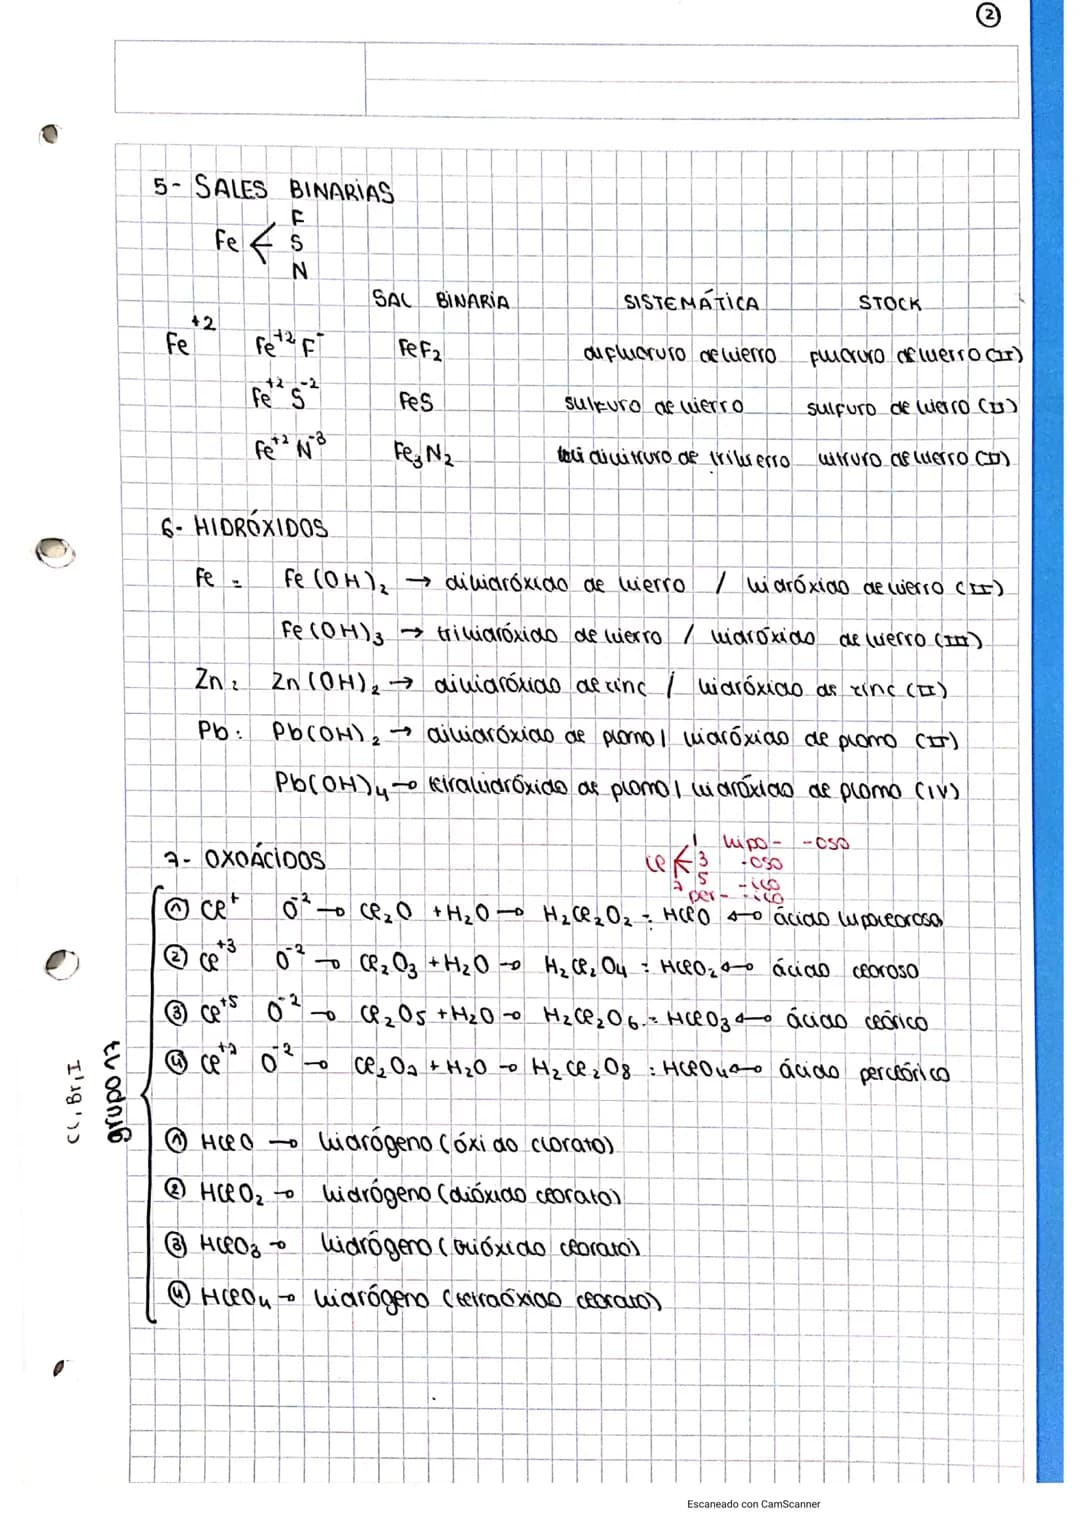 2
5- SALES BINARIAS
Fe < F
S
N
SAL BINARIA SISTEMÁTICA STOCK
Fe+2 Fe+2 F- FeF2 difluoruro de hierro fluoruro de hierro (II)
Fe+2 S-2 FeS sulfuro de hierro sulfuro de hierro (II)
Fe+2 N-3 Fe3N2 dinitruro de trihierro nitruro de hierro (II)
6- HIDRÓXIDOS
Fe = Fe(OH)2 → dihidróxido de hierro / hidróxido de hierro (II)
Fe(OH)3 → trihidróxido de hierro / hidróxido de hierro (III)
Zn: Zn(OH)2 → dihidróxido de zinc / hidróxido de zinc (II)
Pb: Pb(OH)2 → dihidróxido de plomo / hidróxido de plomo (II)
Pb(OH)4 → tetrahidróxido de plomo / hidróxido de plomo (IV)
7- OXOÁCIDOS
Cl < 1 hipo- -oso
3 -oso
5 -ico
7 per- -ico
① Cl+ O-2 → Cl2O + H2O → H2Cl2O2 = HClO → ácido hipocloroso
② Cl+3 O-2 → Cl2O3 + H2O → H2Cl2O4 = HClO2 → ácido cloroso
③ Cl+5 O-2 → Cl2O5 + H2O → H2Cl2O6 = HClO3 → ácido clórico
④ Cl+7 O-2 → Cl2O7 + H2O → H2Cl2O8 : HClO4 → ácido perclórico
Cl, Br, I
grupo 17
① HClO → hidrógeno (óxido clorato)
② HClO2 → hidrógeno (dióxido clorato)
③ HClO3 → hidrógeno (trióxido clorato)
④ HClO4 → hidrógeno (tetraóxido clorato)
Escaneado con CamScanner